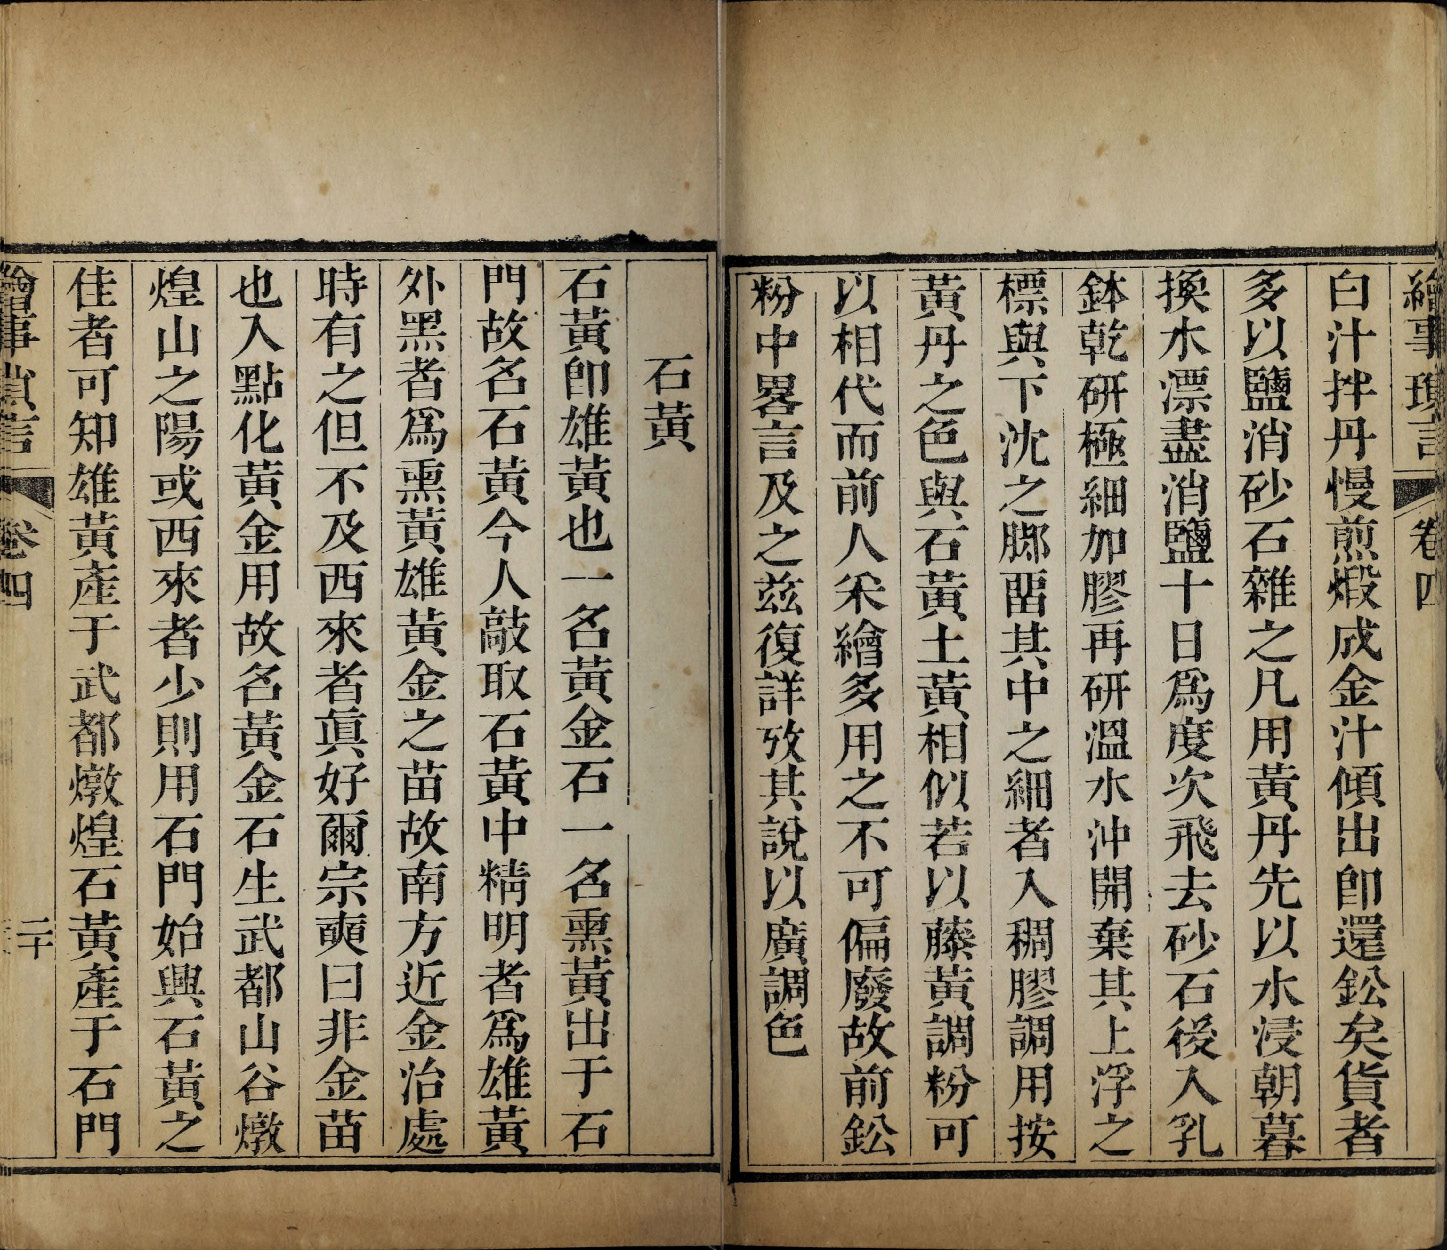 繪事瑣言 卷四
白汁拌丹慢煎煅成金汁傾出卽還鈆矣貨者
多以鹽消砂石雜之凡用黃丹先以水浸朝暮
換水漂盡消鹽十日爲度次飛去砂石後入乳
鉢乾硏極細加膠再硏溫水沖開棄其上浮之
標與下沈之腳畱其中之細者入稠膠調用按
黃丹之色與石黃土黃相似若以藤黃調粉可
以相代而前人采繪多用之不可偏廢故前鈆
粉中畧言及之茲復詳攷其說以廣調色
石黃
石黃卽雄黃也一名黃金石一名熏黃出于石
門故名石黃今人敲取石黃中精明者爲雄黃
外黑者爲熏黃雄黃金之苗故南方近金治處
時有之但不及西來者眞好爾宗奭曰非金苗
也入點化黃金用故名黃金石生武都山谷燉
煌山之陽或西來者少則用石門始興石黃之
佳者可知雄黃產于武都燉煌石黃產于石門
繪事瑣言 卷四 二十